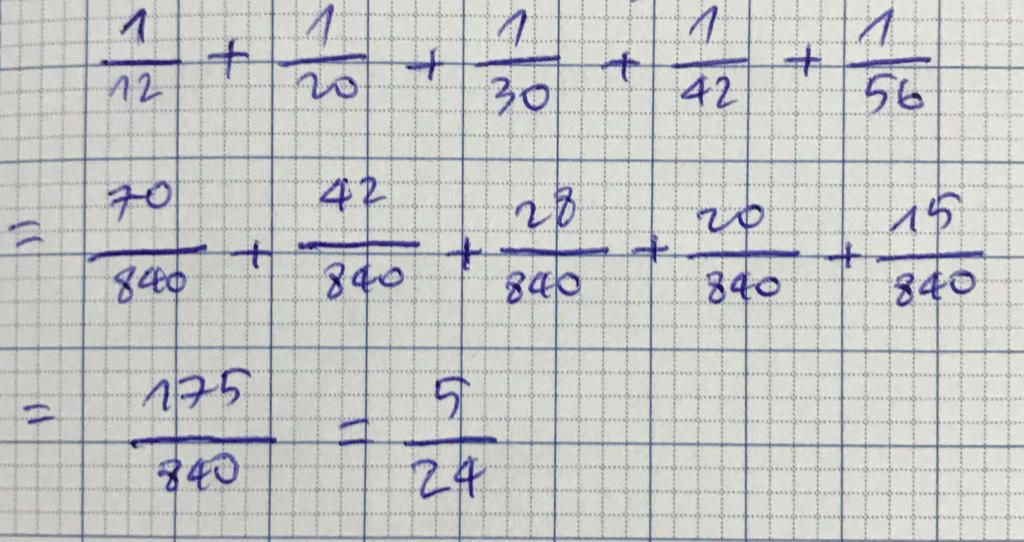 1/12 + 1/20 + 1/30 + 1/42 + 1/56
= 70/840 + 42/840 + 28/840 + 20/840 + 15/840
= 175/840 = 5/24